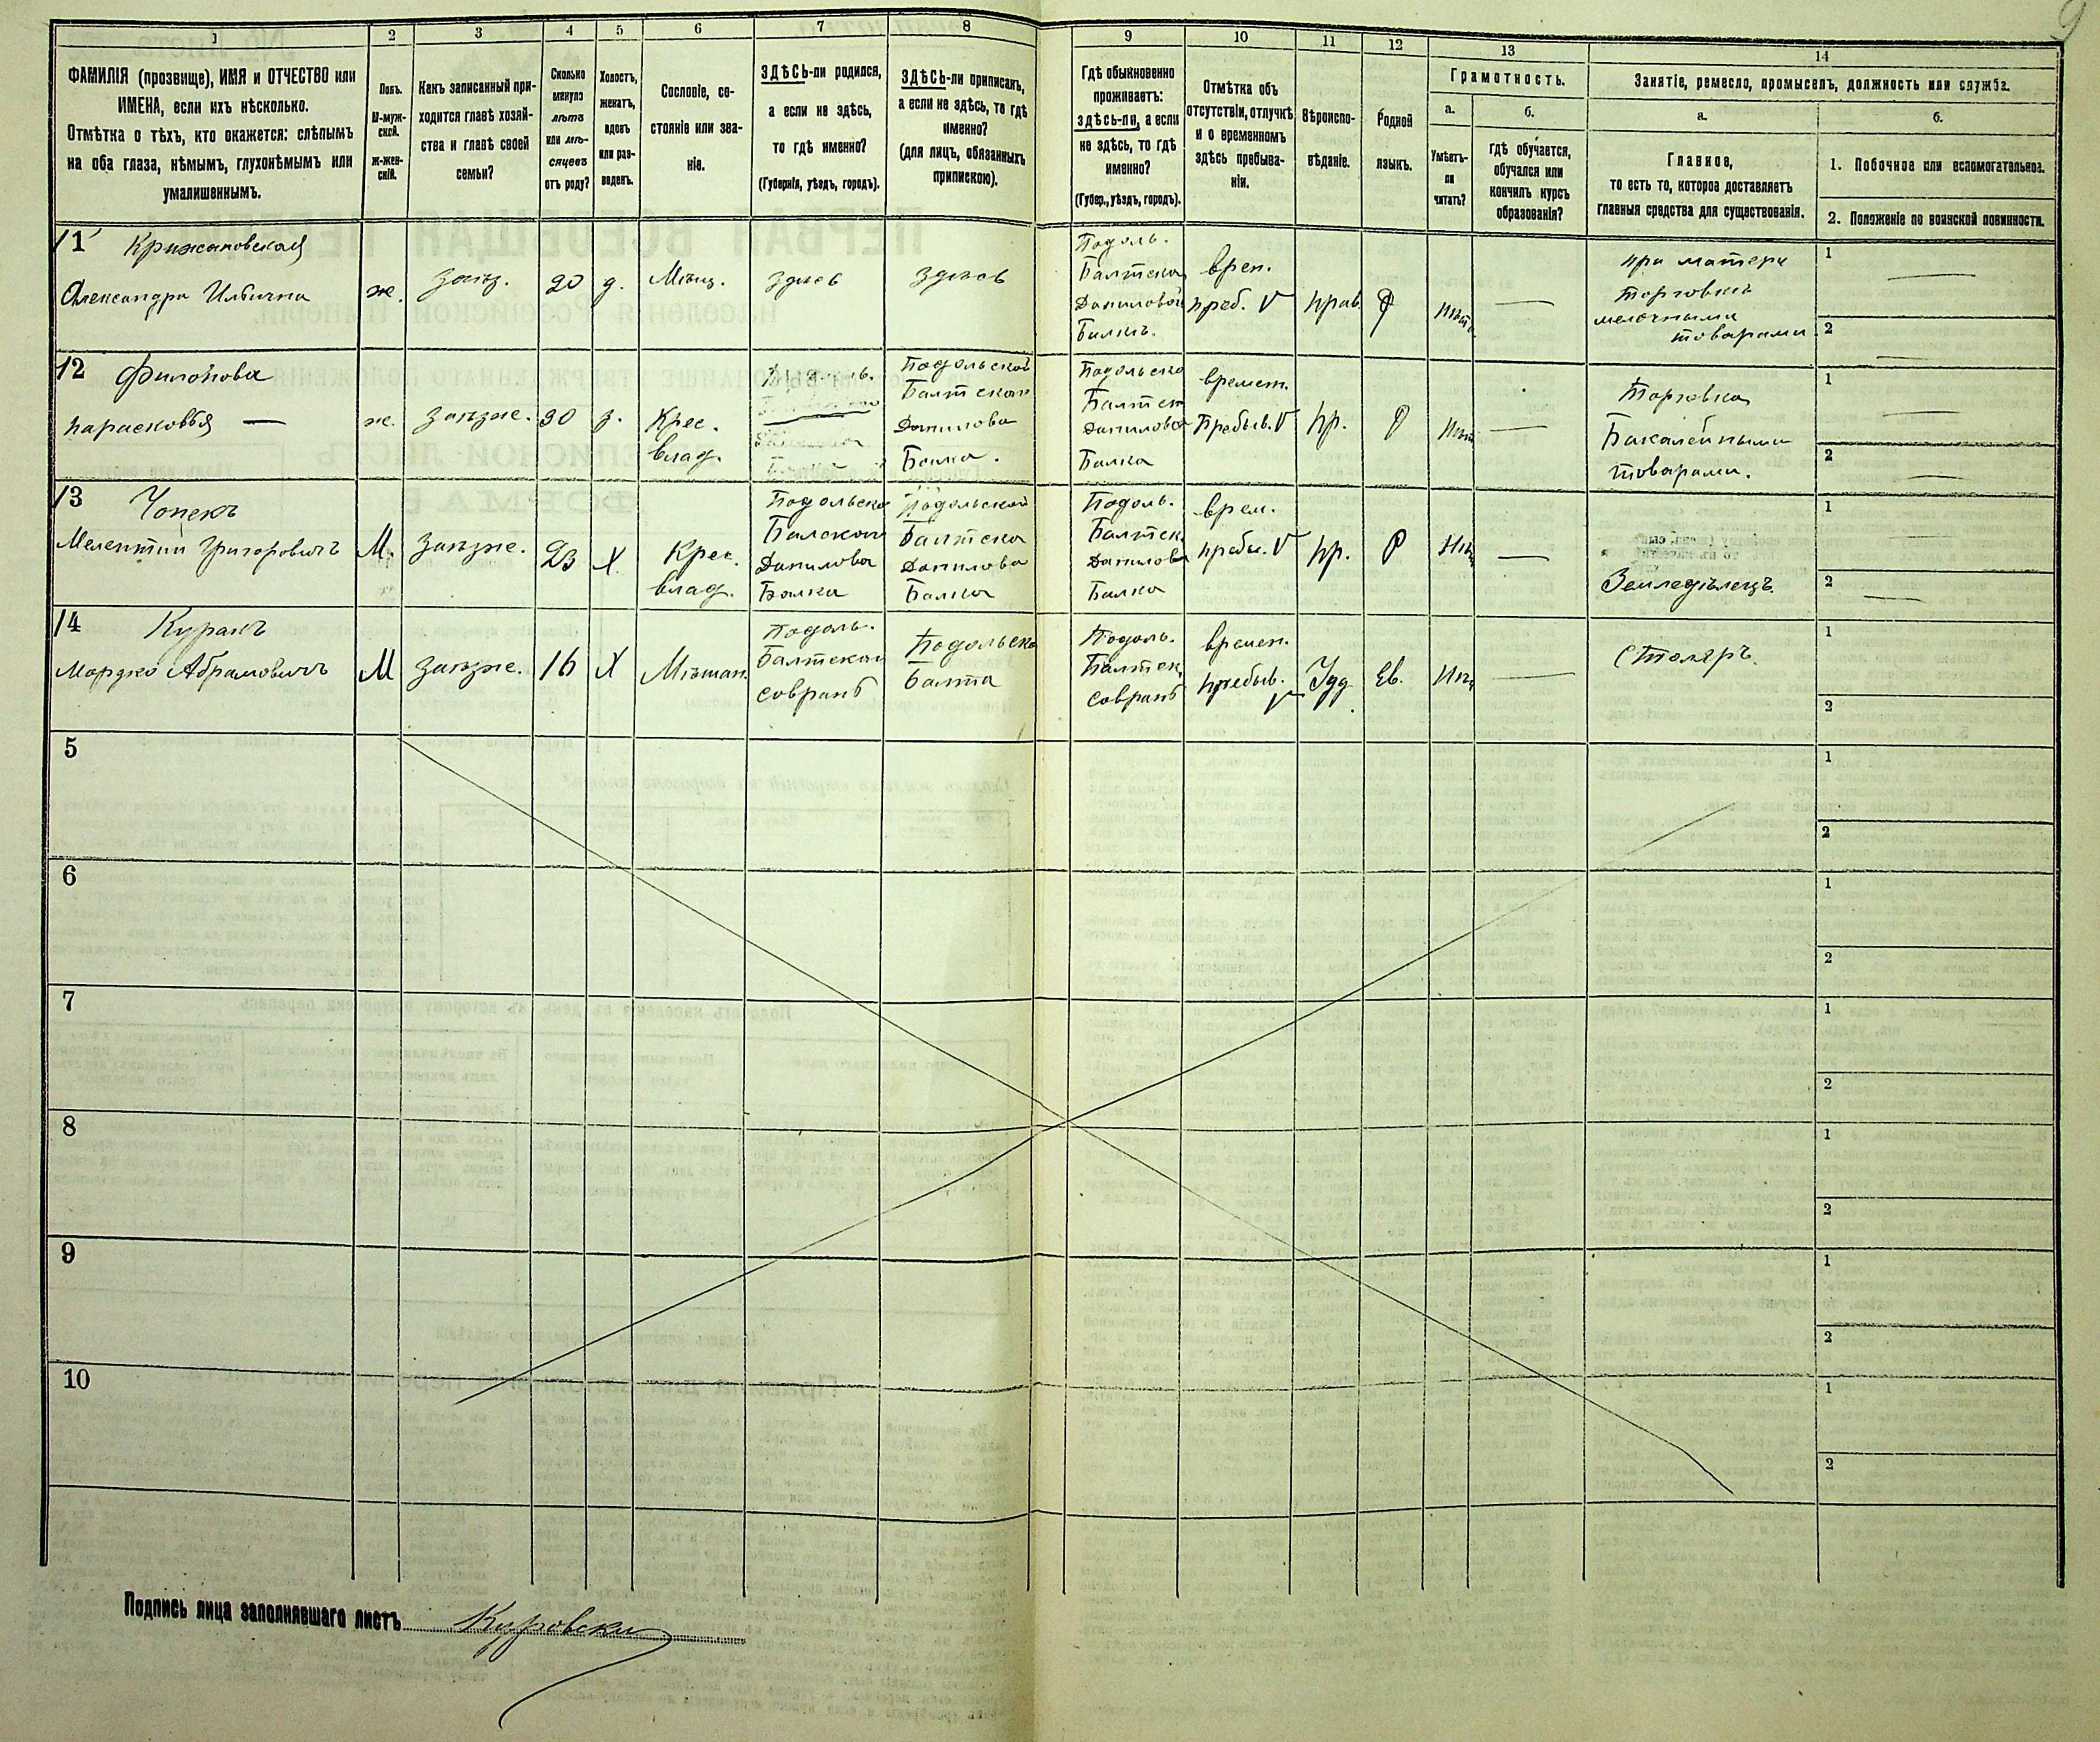 9
1 2 3 4 5 6 7 8 9 10 11 12 13 14
ФАМИЛІЯ (прозвище), ИМЯ и ОТЧЕСТВО или
ИМЕНА, если ихъ нѣсколько.
Отмѣтка о тѣхъ, кто окажется: слѣпымъ
на оба глаза, нѣмымъ, глухонѣмымъ или
умалишеннымъ.
Полъ.
М-муж-
ской.
ж-жен-
скій.
Какъ записанный при-
ходится главѣ хозяй-
ства и главѣ своей
семьи?
Сколько
минуло
лѣтъ
или мѣ-
сяцевъ
отъ роду?
Холостъ,
женатъ,
вдовъ
или раз-
веденъ.
Сословіе, со-
стояніе или зва-
ніе.
ЗДѢСЬ-ли родился,
а если не здѣсь,
то гдѣ именно?
(Губернія, уѣздъ, городъ).
ЗДѢСЬ-ли приписанъ,
а если не здѣсь, то гдѣ
именно?
(для лицъ, обязанныхъ
припискою).
Гдѣ обыкновенно
проживаетъ:
здѣсь-ли, а если
не здѣсь, то гдѣ
именно?
(Губер., уѣздъ, городъ).
Отмѣтка объ
отсутствіи, отлучкѣ
и о временномъ
здѣсь пребыва-
ніи.
Вѣроиспо-
вѣданіе.
Родной
языкъ.
Грамотность.
а.
Умѣетъ-
ли
читать?
б.
Гдѣ обучается,
обучался или
кончилъ курсъ
образованія?
Занятіе, ремесло, промыселъ, должность или служба.
а.
Главное,
то есть то, которое доставляетъ
главныя средства для существованія.
б.
1. Побочное или вспомогательное.
2. Положеніе по воинской повинности.
11
Крижановская
Александра Ильична
ж.
20
д.
Мѣщ.
здѣсь
здѣсь
Подоль.
Балтска
Даниловой
Балкѣ.
врем.
преб. V
прав.
Р
нѣтъ
—
при матери
торговки
мелочными
товарами
1 —
2 —
12
Филонова
Парасковья —
ж.
30
з.
Крес.
влад.
Подольской
Балтской
Данилова
Балка.
Подольско
Балтск
Данилова
Балка
времен.
Пребыв. V
пр.
Р
нѣт
—
Торговка
Бакалейными
товарами.
1 —
2 —
13
Чопекъ
Мелентий Григоровичъ
М.
23
Х
Крес.
влад.
Подольско
Балской
Данилова
Балка
Подольской
Балтска
Данилова
Балка
Подоль.
Балтск
Данилова
Балка
врем.
пребы. V
пр.
Р
Нѣт
—
Земледѣлецъ.
1
2 —
14
Куракъ
Мордко Абрамовичъ
М
16
Х
Мѣщан.
Подоль.
Балтской
Совранѣ
Подольско
Балта
Подоль.
Балтск
Совранѣ
времен.
пребыв.
V
Іуд.
Ев.
Нѣт
—
Столяръ.
1
2
5
1
2
6
1
2
7
1
2
8
1
2
9
1
2
10
1
2
Подпись лица заполнявшаго листъ